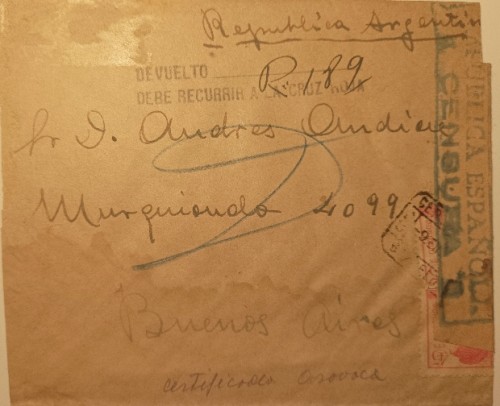 Republica Argentin
DEVUELTO
R. 189
DEBE RECURRIR A LA CRUZ ROJA
Sr D. Andres
Murguiondo 4099
Buenos Aires
certificada
REPUBLICA ESPAÑOLA
CENSURA